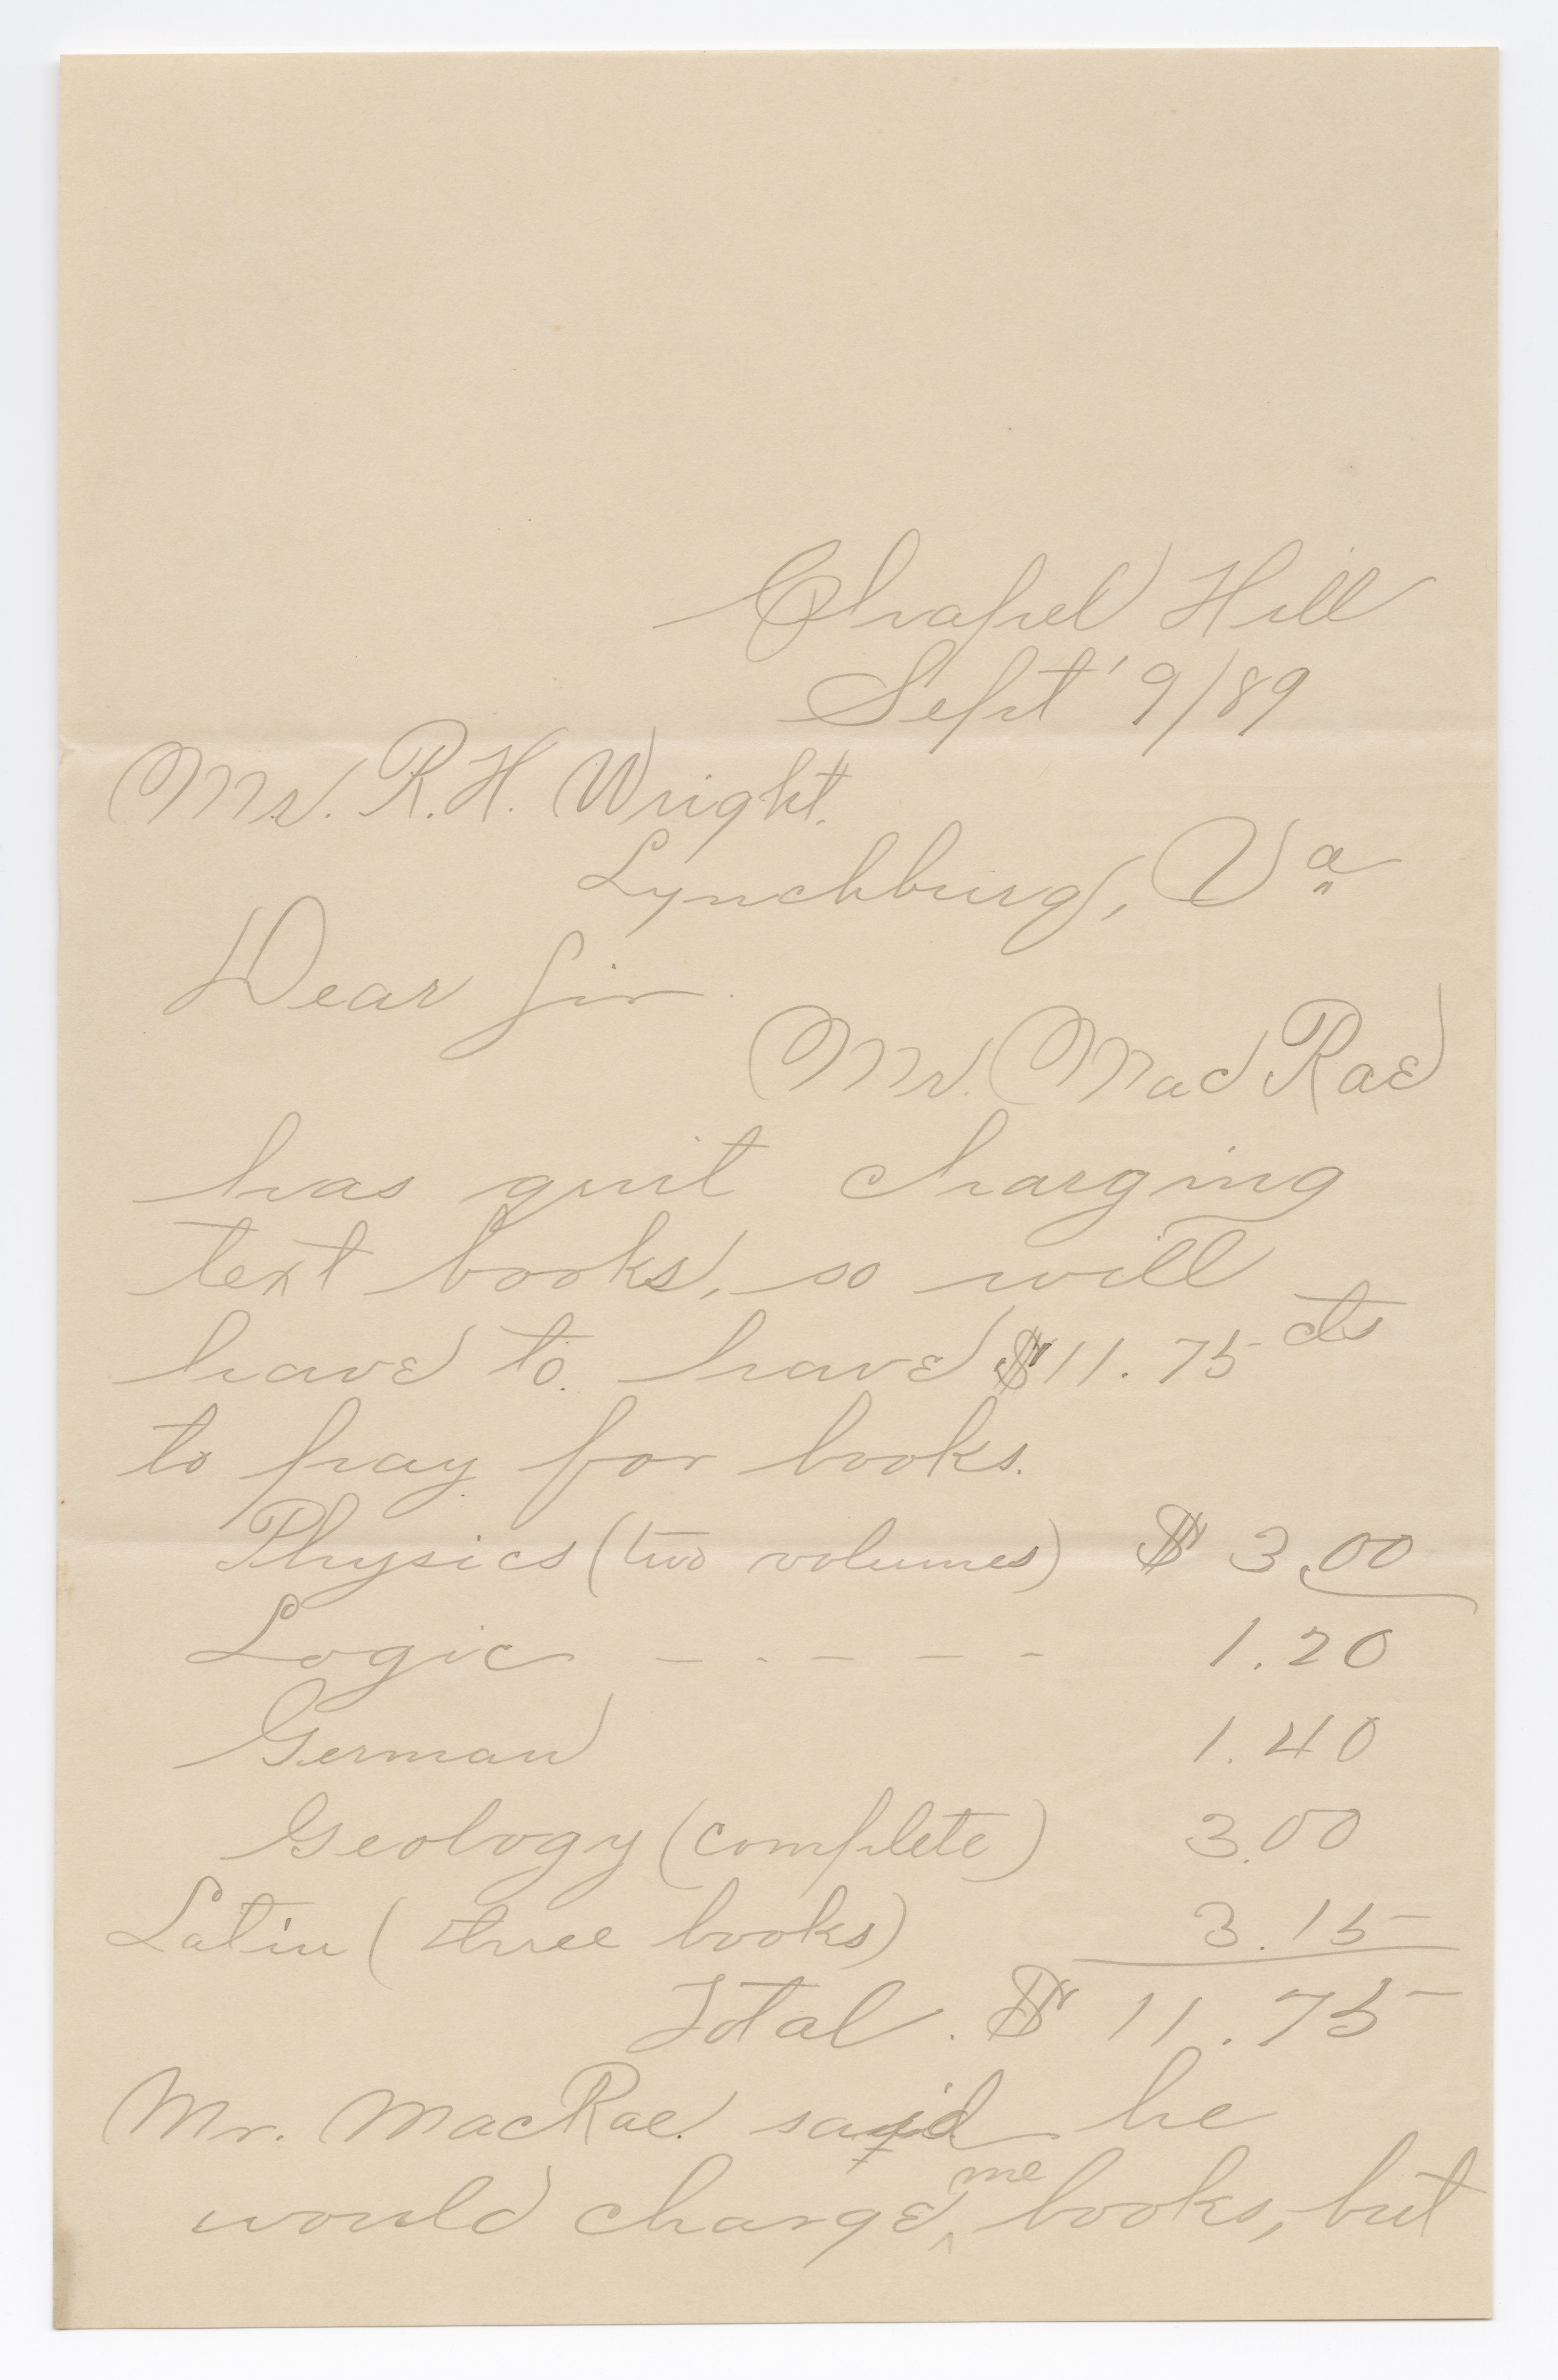 Chapel Hill
Sept' 9/89
Mr. R. H. Wright.
Lynchburg, Va
Dear Sir.
Mr. MacRae
has quit charging
text books, so will
have to have $11.75 cts
to pay for books.
Physics (two volumes) $ 3.00
Logic - - - - - 1.20
German 1.40
Geology (complete) 3.00
Latin (three books) 3.15
Total. $ 11.75
Mr. MacRae. said he
would charge me books, but